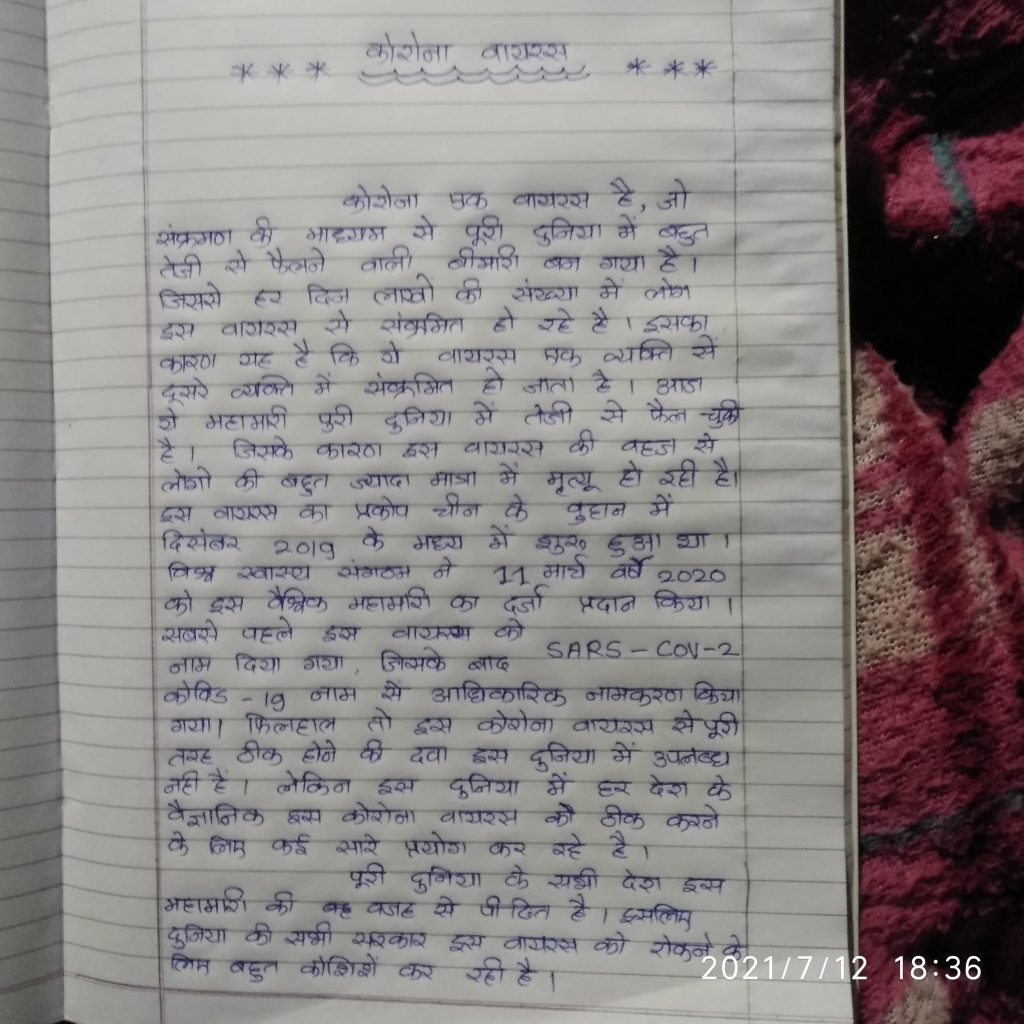 कोरोना वायरस
* * * * * *
कोरोना एक वायरस है, जो
संक्रमण की माध्यम से पूरी दुनिया में बहुत
तेजी से फैलने वाली बीमारी बन गया है।
जिससे हर दिन लाखो की संख्या में लोग
इस वायरस से संक्रमित हो रहे है। इसका
कारण यह है कि ये वायरस एक व्यक्ति से
दूसरे व्यक्ति में संक्रमित हो जाता है। आज
ये महामारी पुरी दुनिया में तेजी से फैल चुकी
है। जिसके कारण इस वायरस की वहज से
लोगो की बहुत ज्यादा मात्रा में मृत्यू हो रही है।
इस वायरस का प्रकोप चीन के वुहान में
दिसंबर 2019 के मध्य में शुरू हुआ था।
विश्व स्वास्थ्य संगठन ने 11 मार्च वर्ष 2020
को इस वैश्विक महामारी का दर्जा प्रदान किया।
सबसे पहले इस वायरस को
नाम दिया गया, जिसके बाद SARS-COV-2
कोविड -19 नाम से आधिकारिक नामकरण किया
गया। फिलहाल तो इस कोरोना वायरस से पूरी
तरह ठीक होने की दवा इस दुनिया में उपलब्ध
नही हैं। लेकिन इस दुनिया में हर देश के
वैज्ञानिक इस कोरोना वायरस को ठीक करने
के लिए कई सारे प्रयोग कर रहे है।
पूरी दुनिया के सभी देश इस
महामारी की वह वजह से पीडित है। इसलिए
दुनिया की सभी सरकार इस वायरस को रोकने के
लिए बहुत कोशिशें कर रही है।
2021/7/12 18:36